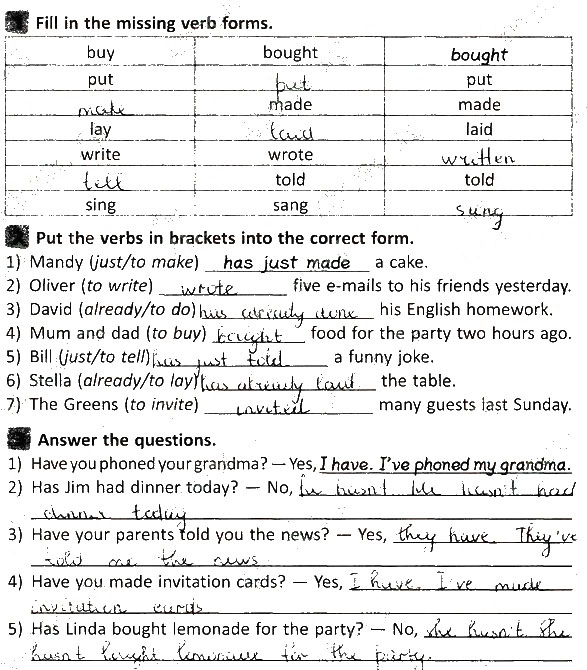 1 Fill in the missing verb forms.
buy bought bought
put put put
make made made
lay laid laid
write wrote written
tell told told
sing sang sung
2 Put the verbs in brackets into the correct form.
1) Mandy (just/to make) has just made a cake.
2) Oliver (to write) wrote five e-mails to his friends yesterday.
3) David (already/to do) has already done his English homework.
4) Mum and dad (to buy) bought food for the party two hours ago.
5) Bill (just/to tell) has just told a funny joke.
6) Stella (already/to lay) has already laid the table.
7) The Greens (to invite) invited many guests last Sunday.
3 Answer the questions.
1) Have you phoned your grandma? — Yes, I have. I've phoned my grandma.
2) Has Jim had dinner today? — No, he hasn't He hasn't had
dinner today
3) Have your parents told you the news? — Yes, they have. They've
told me the news
4) Have you made invitation cards? — Yes, I have. I've made
invitation cards
5) Has Linda bought lemonade for the party? — No, she hasn't She
hasn't bought lemonade for the party.